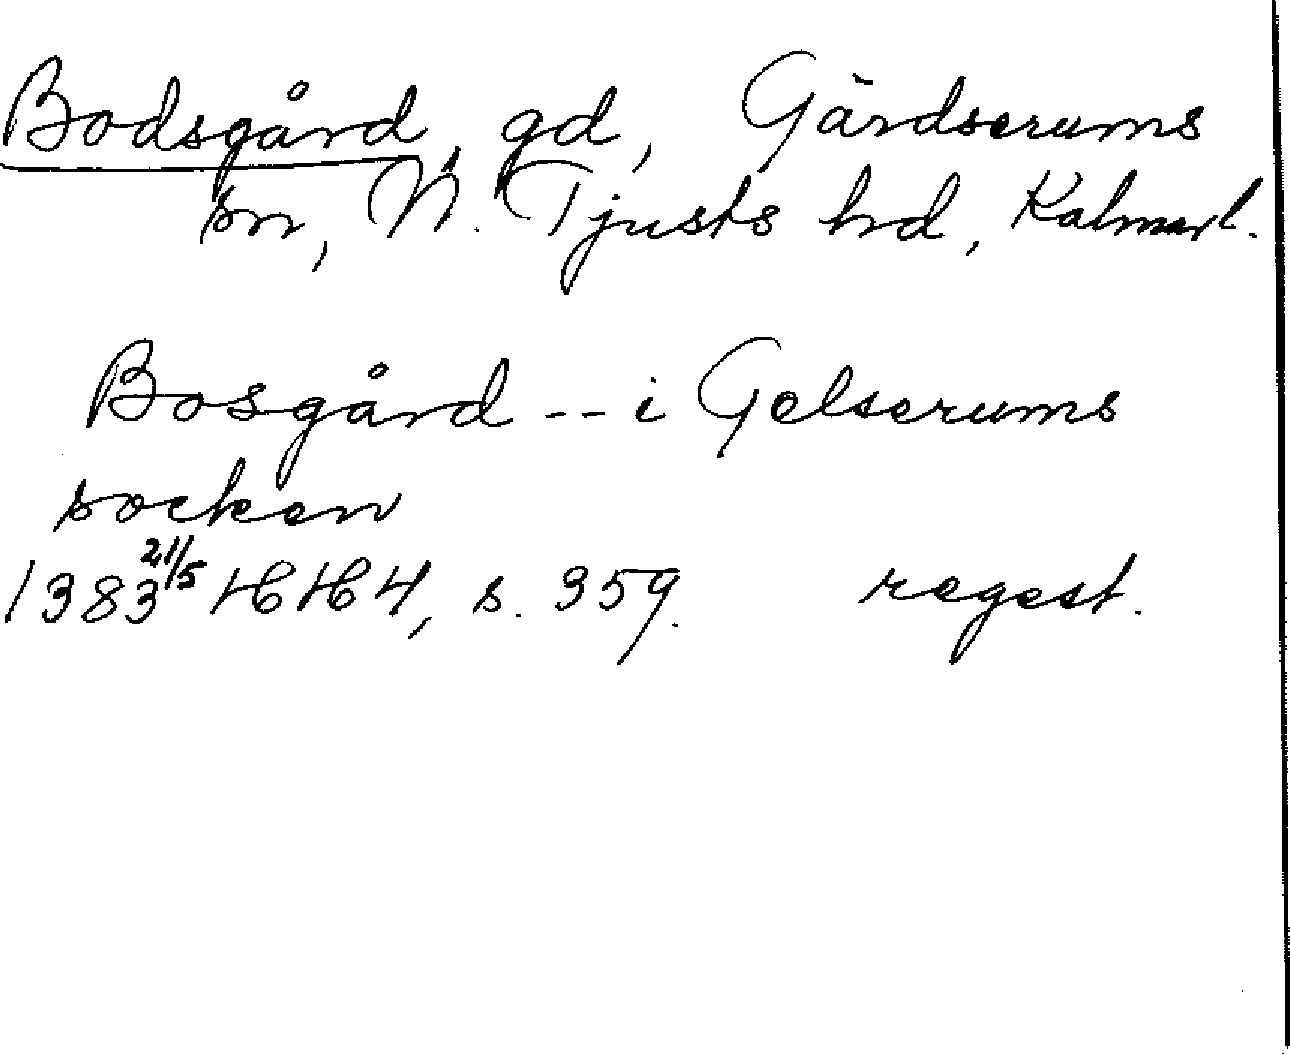 Bodsgård, gd, Gärdserums
sn, N. Tjusts hd, Kalmarl.
Bosgård -- i Gelserums
socken
1383 21/5 HH 4, s. 359. regest.